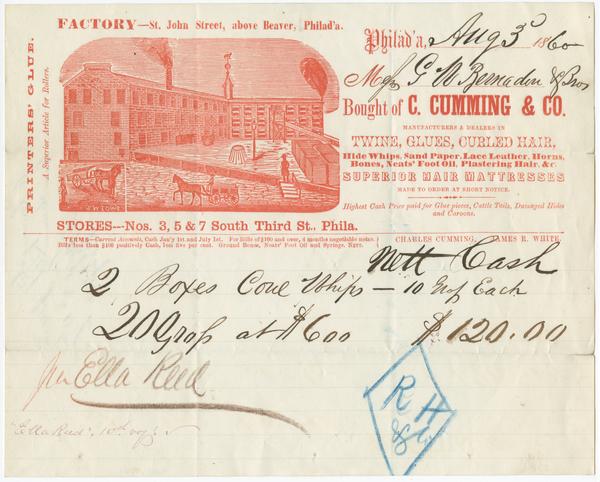 FACTORY—St. John Street, above Beaver, Philad'a.
PRINTERS' GLUE.
A Superior Article for Rollers.
Philad'a, Aug 3 1860
Mess G W Bernadou & Bros
Bought of C. CUMMING & CO.
MANUFACTURERS & DEALERS IN
TWINE, GLUES, CURLED HAIR,
Hide Whips, Sand Paper, Lace Leather, Horns,
Bones, Neats' Foot Oil, Plastering Hair, &c.
SUPERIOR HAIR MATTRESSES
MADE TO ORDER AT SHORT NOTICE.
Highest Cash Price paid for Glue pieces, Cattle Tails, Damaged Hides
and Caroons.
J.W. LOWE
STORES—Nos. 3, 5 & 7 South Third St., Phila.
TERMS—Current Accounts, Cash Jan'y 1st and July 1st. For Bills of $100 and over, 4 months negotiable notes.
Bills less than $100 positively Cash, less five per cent. Ground Bones, Neats' Foot Oil and Springs, Nett.
CHARLES CUMMING, JAMES R. WHITE.
Nett Cash
2 Boxes Cow Whips — 10 Gross Each
20 Gross at $600 $120.00
per Ella Reed
"Ella Reed", 10th voy
R H
& Co